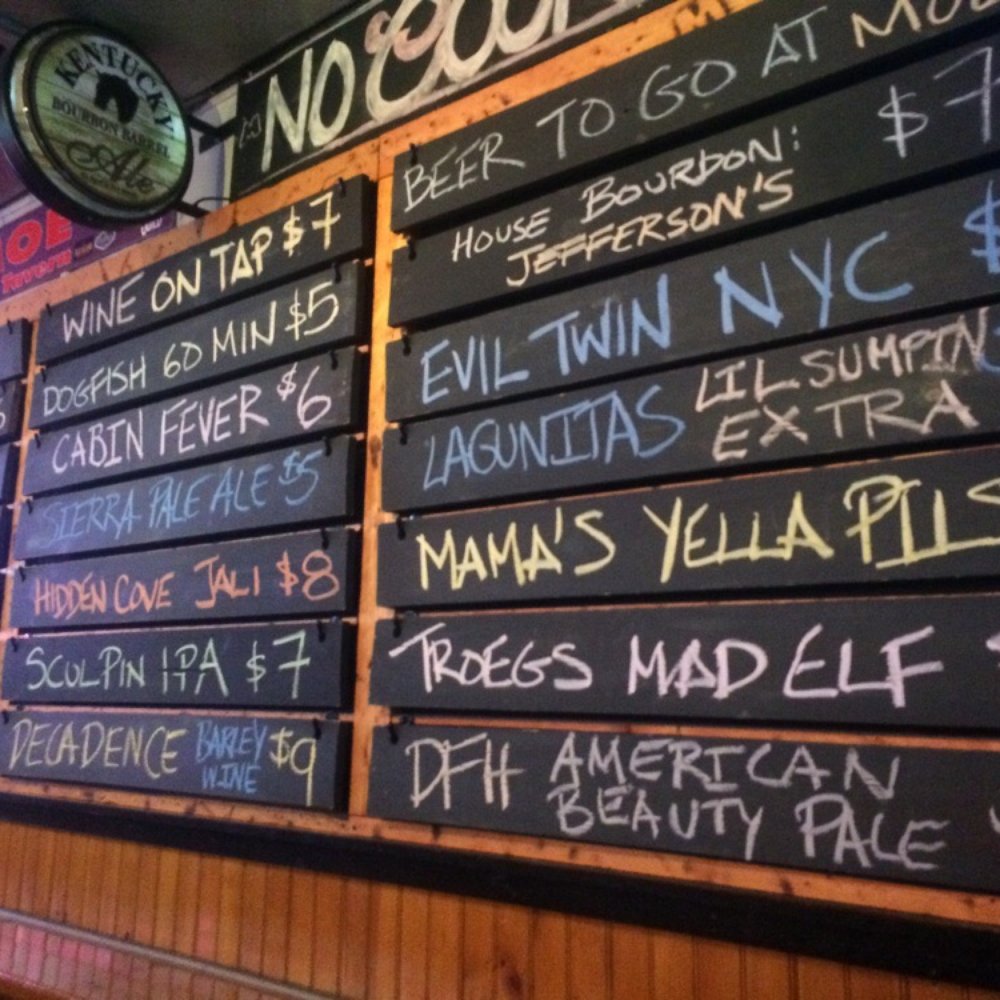 KENTUCKY
BOURBON BARREL
Ale
NO
WINE ON TAP $7
DOGFISH 60 MIN $5
CABIN FEVER $6
SIERRA PALE ALE $5
HIDDEN COVE JALI $8
SCULPIN IPA $7
DECADENCE BARLEY WINE $9
BEER TO GO AT
HOUSE BOURBON: $7
JEFFERSON'S
EVIL TWIN NYC $
LAGUNITAS LIL SUMPIN
EXTRA
MAMA'S YELLA PILS
TROEGS MAD ELF
DFH AMERICAN
BEAUTY PALE